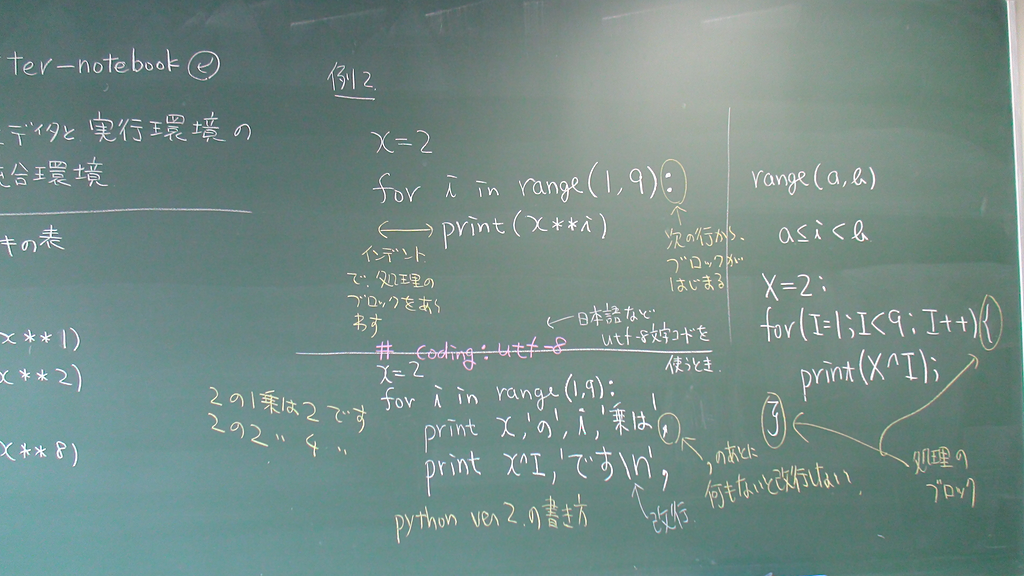 ter-notebook
ディタと 実行環境の
合環境
キの表
x**1)
x**2)
x**8)
例2
x=2
for i in range(1,9):
print(x**i)
インデント
で、処理の
ブロックをあら
わす
次の行から、
ブロックが
はじまる
range(a,b)
a≤i<b
X=2;
for(I=1;I<9;I++){
print(X^I);
}
処理の
ブロック
# coding:utf-8
日本語など
utf-8文字コードを
使うとき.
x=2
for i in range(1,9):
print x,'の',i,'乗は',
print x^I,'です\n',
,のあとに
何もないと改行しない.
改行
2の1乗は2です
2の2〃 4 〃
python ver 2.の書き方